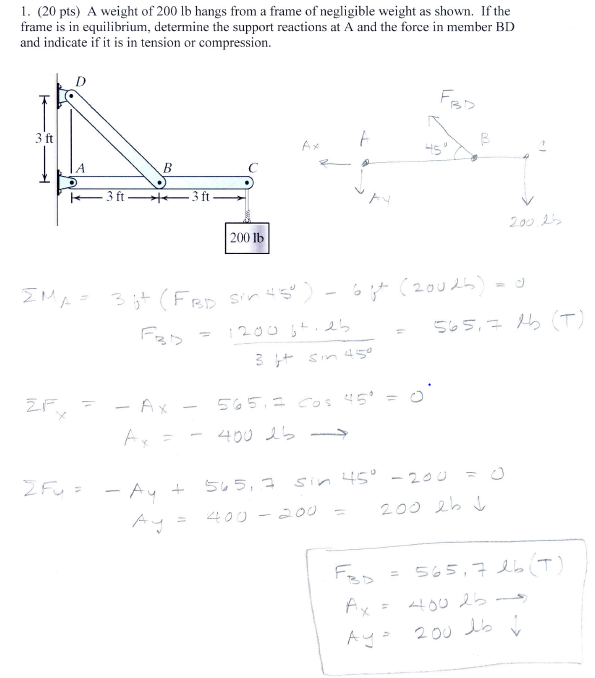 1. (20 pts) A weight of 200 lb hangs from a frame of negligible weight as shown. If the
frame is in equilibrium, determine the support reactions at A and the force in member BD
and indicate if it is in tension or compression.
D
3 ft
A
B
C
3 ft
3 ft
200 lb
F_BD
Ax
A
45°
B
Ay
200 lb
ΣM_A = 3 ft (F_BD sin 45°) - 6 ft (200 lb) = 0
F_BD = 1200 ft·lb / 3 ft sin 45° = 565.7 lb (T)
ΣF_x = - Ax - 565.7 cos 45° = 0
A_x = - 400 lb →
ΣFy = - Ay + 565.7 sin 45° - 200 = 0
Ay = 400 - 200 = 200 lb ↓
F_BD = 565.7 lb (T)
A_x = 400 lb →
Ay = 200 lb ↓